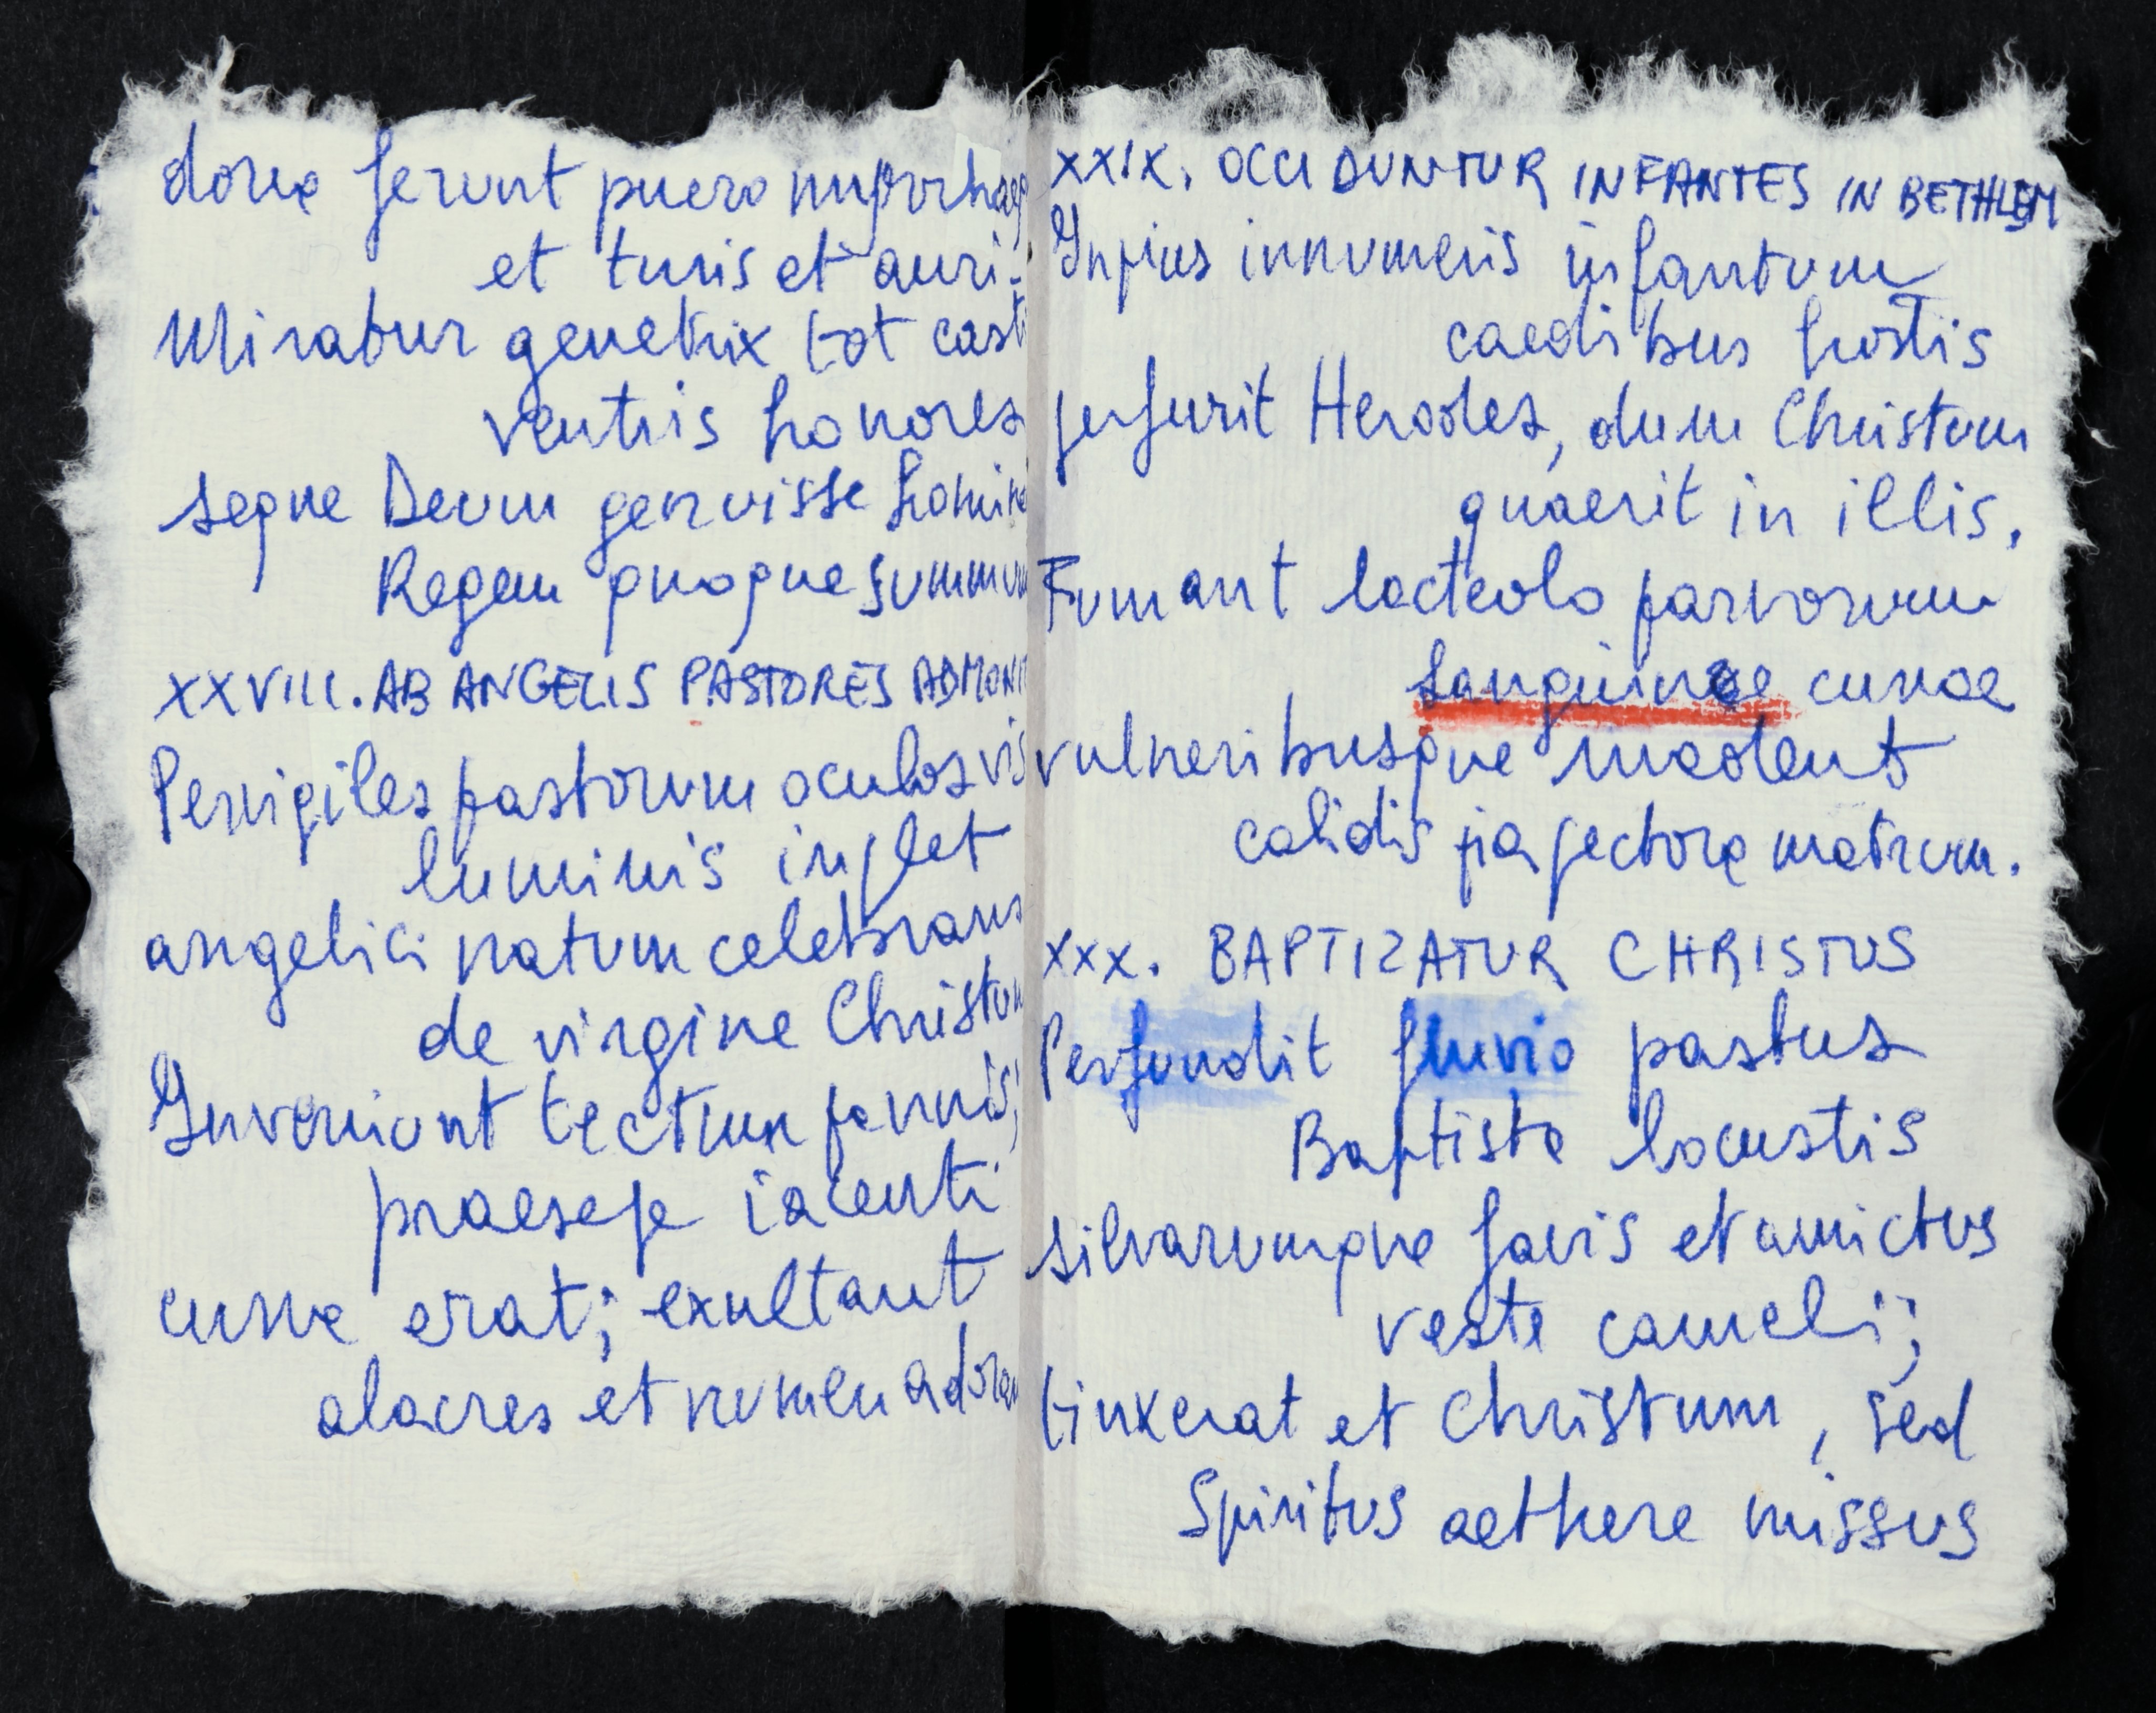 dona ferunt puero myrrhaeq
et turis et auri.
Mirabur genetrix tot casti
ventris honores
seque Deum genuisse homine
Regem quoque summum
XXVIII. AB ANGELIS PASTORES ADMONI
Pervigiles pastorum oculos vis
luminis inplet
angelici natum celebrans
de virgine Christum
Inveniunt tectum pannis;
praesepe iacenti
cuna erat; exultant
alacres et numen adoran
XXIX. OCCIDUNTUR INFANTES IN BETHLEM
Inpius innumeris infantum
caedibus hostis
perfurit Herodes, dum Christum
quaerit in illis.
Fumant lacteolo parvorum
sanguine cunae
vulneribusque madent
calidis pia pectora matrum.
XXX. BAPTIZATUR CHRISTUS
Perfundit fluvio pastus
Baptista locustis
silvarumque favis et amictus
veste cameli;
tinxerat et Christum, sed
Spiritus aethere missus